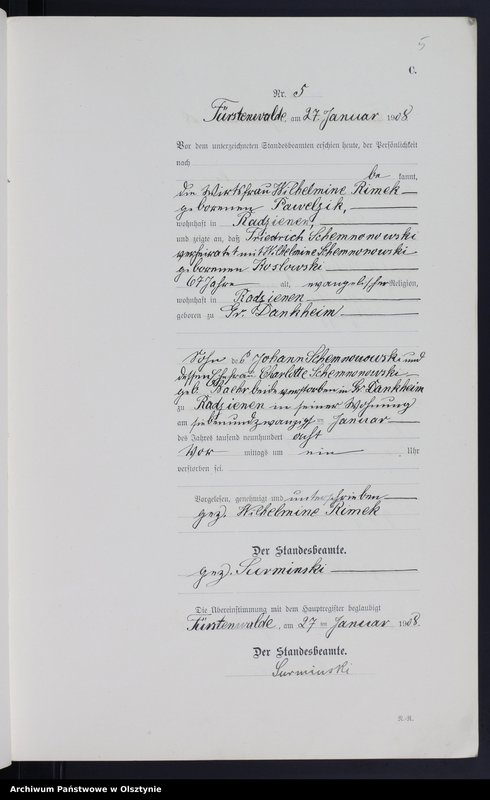 5
C.
Nr. 5
Fürstenwalde, am 27. Januar 1908
Vor dem unterzeichneten Standesbeamten erschien heute, der Persönlichkeit
nach
be kannt,
die Wirtsfrau Wilhelmine Rimek
geborenen Pawelzik,
wohnhaft in Radzienen,
und zeigte an, daß Friedrich Schemnonowski
verheiratet mit Wilhelmine Schemnonowski
geborenen Koslowski
67 Jahre alt, evangelischer Religion,
wohnhaft in Radzienen
geboren zu Gr. Dankheim
Sohn des Johann Schemnonowski und
dessen Ehefrau Charlotte Schemnonowski
geb. Baehr beide verstorben in Gr. Dankheim
zu Radzienen in seiner Wohnung
am siebenundzwanzigsten Januar
des Jahres tausend neunhundert acht
Vor mittags um ein Uhr
verstorben sei.
Vorgelesen, genehmigt und unterschrieben
gez. Wilhelmine Rimek
Der Standesbeamte.
gez. Surminski
Die Übereinstimmung mit dem Hauptregister beglaubigt
Fürstenwalde, am 27 ten Januar 1908.
Der Standesbeamte.
Surminski
Archiwum Państwowe w Olsztynie